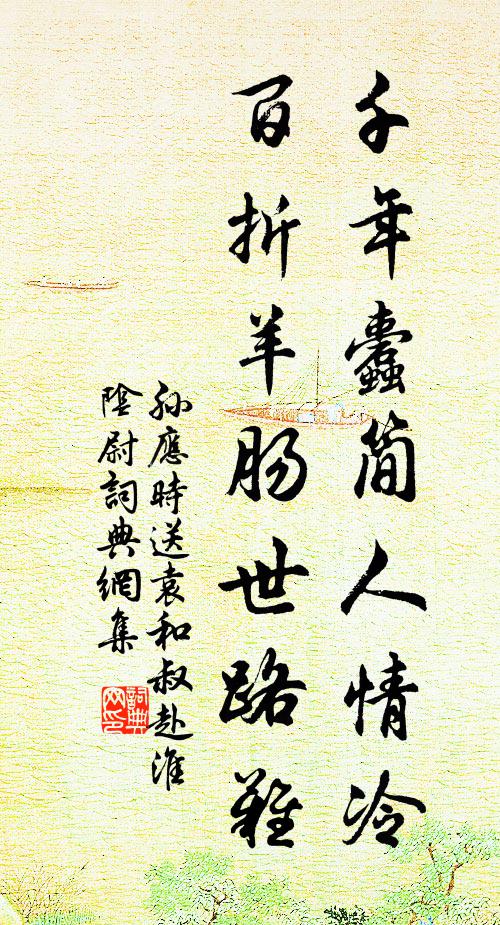 千年蠹簡人情冷
百折羊肠世路難
孙應時送袁和叔赴淮
陰尉詞典網集
詞典
网印